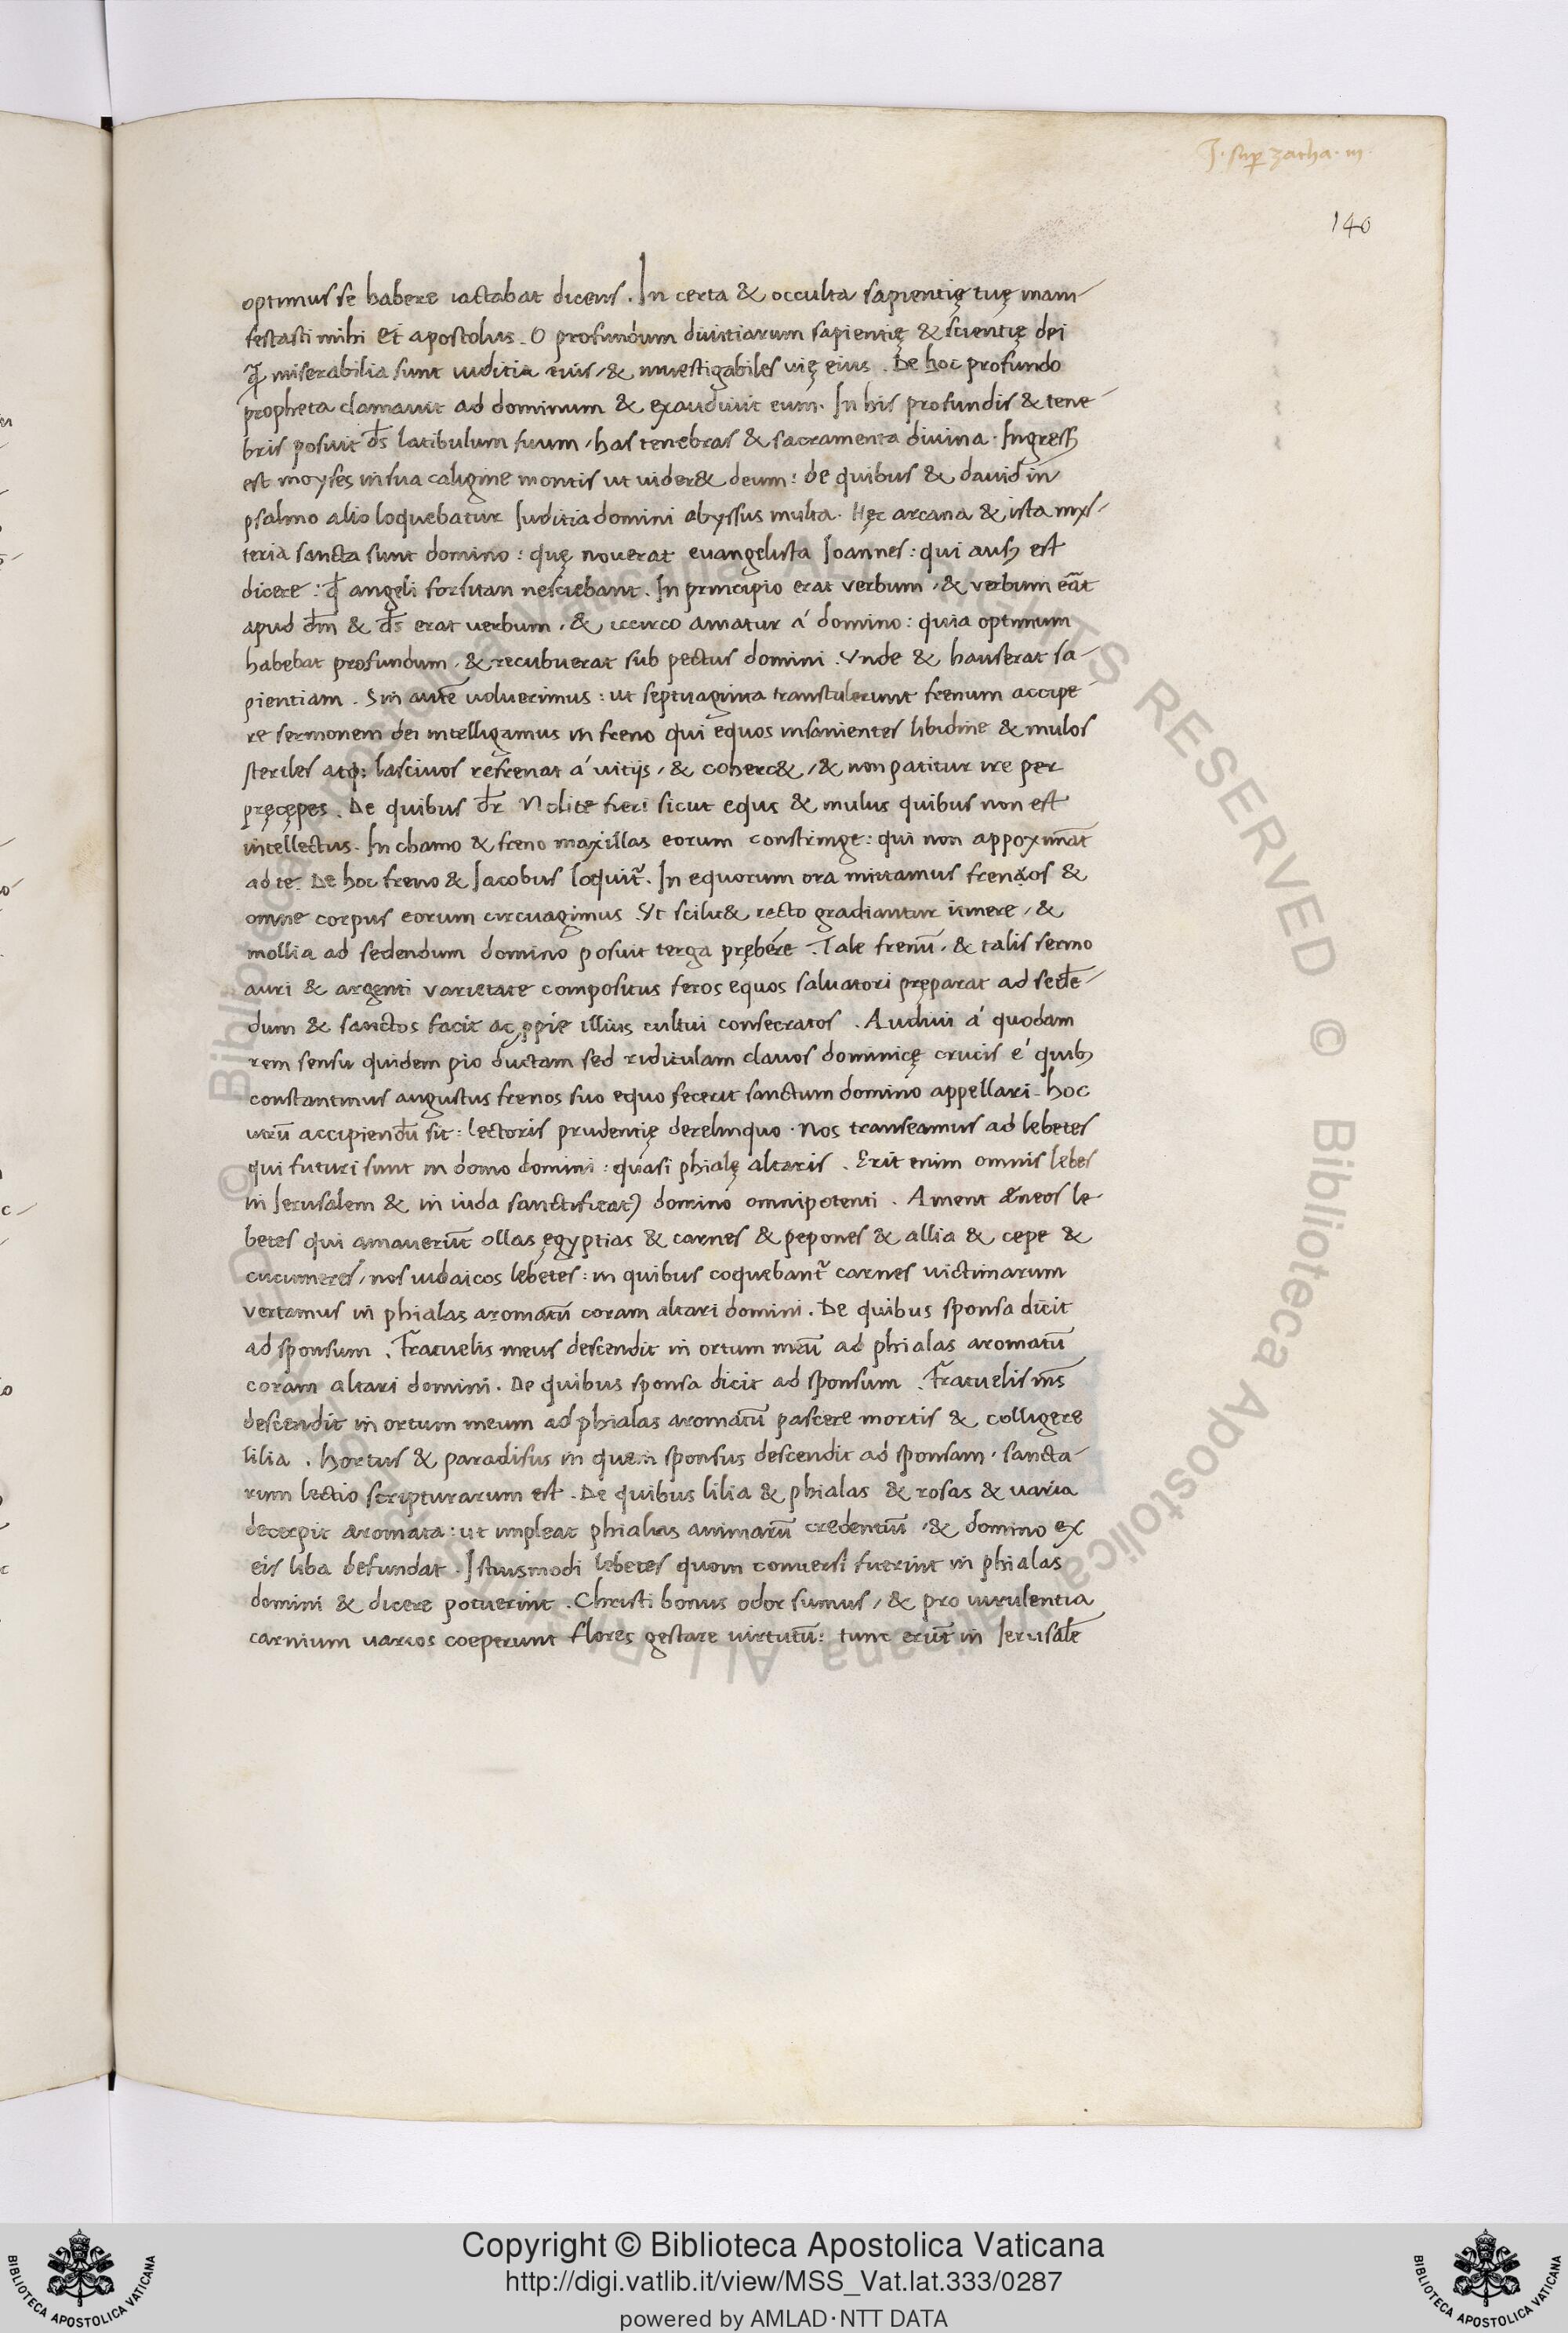 J. sup zacha. iii.
140
optimus se habere iactabat dicens. In certa & occulta sapientię tuę mani-
festasti mihi Et apostolus. O profundum diuitiarum sapientię & scientię dei
q̃ miserabilia sunt iuditia eius, & inuestigabiles uię eius. De hoc profundo
propheta clamauit ad dominum & exaudiuit eum. In his profundis & tene-
bris posuit d̄s latibulum suum, has tenebras & sacramenta diuina. Ingressꝰ
est moyses in sua caligine montis ut uider& deum: de quibus & dauid in
psalmo alio loquebatur Iuditia domini abyssus multa. Hęc arcana & ista mys-
teria sancta sunt domino: quę nouerat euangelista Ioannes: qui ausꝰ est
dicere: q̄ angeli forsitan nesciebant. In principio erat verbum, & verbum erāt
apud d̄m & d̄s erat uerbum, & iccirco amatur á domino: quia optimum
habebat profundum, & recubuerat sub pectus domini. Vnde & hauserat sa-
pientiam. Sin autē uoluerimus: ut septuaginta transtulerunt frenum accipe-
re sermonem dei intelligamus in freno qui equos insanientes libidine & mulos
steriles atq: lasciuos refrenat á uitijs, & coherc&, & non patitur ire per
pręcępes. De quibus d̄r Nolite fieri sicut equs & mulus quibus non est
intellectus. In chamo & freno maxillas eorum constringe: qui non appoximāt
ad te. De hoc freno & Iacobus loquit̃. In equorum ora mittamus frenos &
omne corpus eorum circuagimus. Vt scilic& recto gradiantur itinere, &
mollia ad sedendum domino posuit terga prębére. Tale frenū, & talis sermo
auri & argenti varietate compositus feros equos saluatori pręparat ad sedē-
dum & sanctos facit ac ꝓprie illius cultui consecratos. Audiui á quodam
rem sensu quidem pio dictam sed ridiculam clauos dominicę crucis é quibꝰ
constantinus augustus frenos suo equo fecerit sanctum domino appellari. hoc
utrū accipiendū sit: lectoris prudentię derelinquo. Nos transeamus ad lebetes
qui futuri sunt in domo domini: quasi phialę altaris. Erit enim omnis lebes
in Ierusalem & in iuda sanctificatꝰ domino omnipotenti. Ament æneos le-
betes qui amauerūt ollas ęgyptias & carnes & pepones & allia & cepe &
cucumeres, nos iudaicos lebetes: in quibus coquebant̃ carnes uictimarum
vertamus in phialas aromatū coram altari domini. De quibus sponsa dicit
ad sponsum. Fratuelis meus descendit in ortum meū ad phialas aromatū
coram altari domini. De quibus sponsa dicit ad sponsum. Fratuelis m̄s
descendit in ortum meum ad phialas aromatū pascere mortis & colligere
lilia. hortus & paradisus in quem sponsus descendit ad sponsam, sancta-
rum lectio scripturarum est. De quibus lilia & phialas & rosas & uaria
decerpit aromata: ut impleat phialas animarū credentiū, & domino ex
eis liba defundat. Istiusmodi lebetes quom conuersi fuerint in phialas
domini & dicere potuerint. Christi bonus odor sumus, & pro iurulentia
carnium uarios coeperunt flores gestare uirtutū: tunc erūt in Ierusalē
Copyright © Biblioteca Apostolica Vaticana
http://digi.vatlib.it/view/MSS_Vat.lat.333/0287
powered by AMLAD·NTT DATA